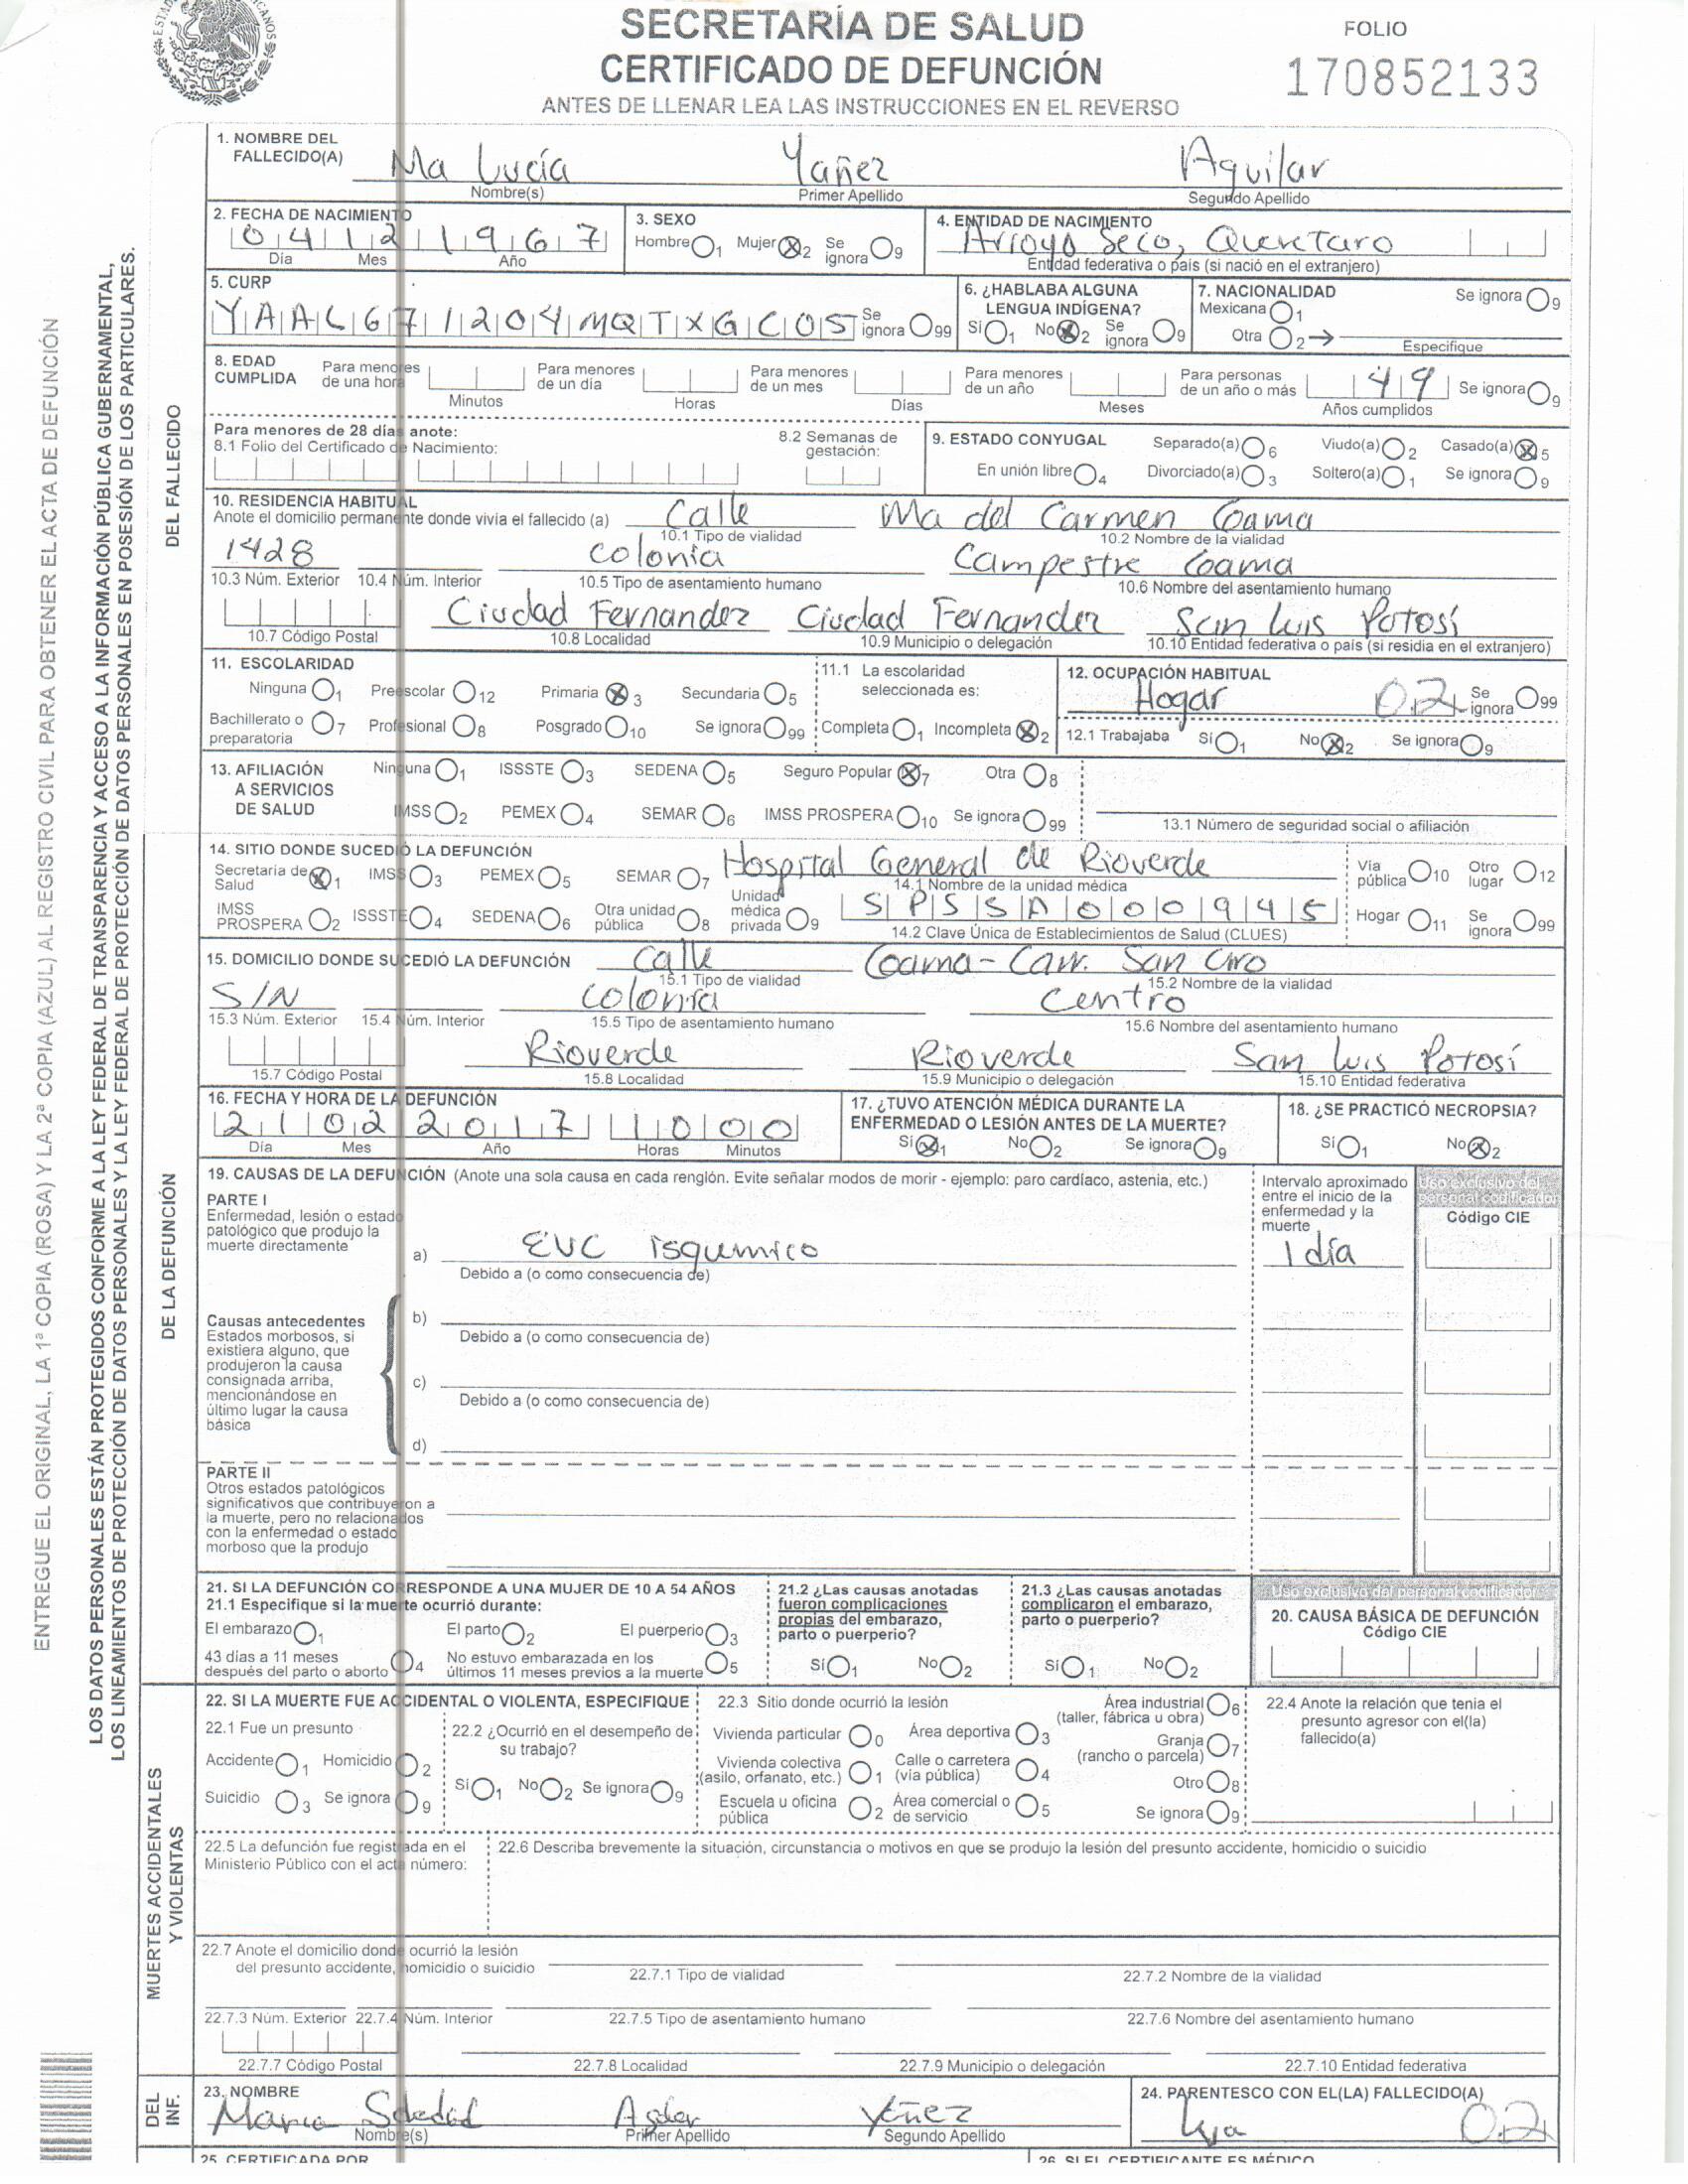 SECRETARÍA DE SALUD
CERTIFICADO DE DEFUNCIÓN
ANTES DE LLENAR LEA LAS INSTRUCCIONES EN EL REVERSO
FOLIO
170852133
ENTREGUE EL ORIGINAL, LA 1ª COPIA (ROSA) Y LA 2ª COPIA (AZUL) AL REGISTRO CIVIL PARA OBTENER EL ACTA DE DEFUNCIÓN
LOS DATOS PERSONALES ESTÁN PROTEGIDOS CONFORME A LA LEY FEDERAL DE TRANSPARENCIA Y ACCESO A LA INFORMACIÓN PÚBLICA GUBERNAMENTAL,
LOS LINEAMIENTOS DE PROTECCIÓN DE DATOS PERSONALES Y LA LEY FEDERAL DE PROTECCIÓN DE DATOS PERSONALES EN POSESIÓN DE LOS PARTICULARES.
DEL FALLECIDO
1. NOMBRE DEL FALLECIDO(A) Ma Lucía Yañez Aguilar
Nombre(s) Primer Apellido Segundo Apellido
2. FECHA DE NACIMIENTO 3. SEXO 4. ENTIDAD DE NACIMIENTO
04 12 1967 Hombre 1 Mujer 2 Se ignora 9 Arroyo Seco, Queretaro
Día Mes Año Entidad federativa o país (si nació en el extranjero)
5. CURP 6. ¿HABLABA ALGUNA LENGUA INDÍGENA? 7. NACIONALIDAD Se ignora 9
YAAL671204MQTXGC05 Se ignora 99 Sí 1 No 2 Se ignora 9 Mexicana 1 Otra 2 Especifique
8. EDAD CUMPLIDA Para menores de una hora Para menores de un día Para menores de un mes Para menores de un año Para personas de un año o más 49 Se ignora 9
Minutos Horas Días Meses Años cumplidos
Para menores de 28 días anote:
8.1 Folio del Certificado de Nacimiento: 8.2 Semanas de gestación:
9. ESTADO CONYUGAL Separado(a) 6 Viudo(a) 2 Casado(a) 5
En unión libre 4 Divorciado(a) 3 Soltero(a) 1 Se ignora 9
10. RESIDENCIA HABITUAL
Anote el domicilio permanente donde vivía el fallecido (a) Calle Ma del Carmen Gama
10.1 Tipo de vialidad 10.2 Nombre de la vialidad
1428 Colonia Campestre Gama
10.3 Núm. Exterior 10.4 Núm. Interior 10.5 Tipo de asentamiento humano 10.6 Nombre del asentamiento humano
Ciudad Fernandez Ciudad Fernandez San Luis Potosí
10.7 Código Postal 10.8 Localidad 10.9 Municipio o delegación 10.10 Entidad federativa o país (si residia en el extranjero)
11. ESCOLARIDAD 11.1 La escolaridad seleccionada es: 12. OCUPACIÓN HABITUAL
Ninguna 1 Preescolar 12 Primaria 3 Secundaria 5 Hogar 02 Se ignora 99
Bachillerato o preparatoria 7 Profesional 8 Posgrado 10 Se ignora 99 Completa 1 Incompleta 2 12.1 Trabajaba Sí 1 No 2 Se ignora 9
13. AFILIACIÓN A SERVICIOS DE SALUD Ninguna 1 ISSSTE 3 SEDENA 5 Seguro Popular 7 Otra 8
IMSS 2 PEMEX 4 SEMAR 6 IMSS PROSPERA 10 Se ignora 99 13.1 Número de seguridad social o afiliación
DE LA DEFUNCIÓN
14. SITIO DONDE SUCEDIÓ LA DEFUNCIÓN Hospital General de Rioverde
Secretaria de Salud 1 IMSS 3 PEMEX 5 SEMAR 7 14.1 Nombre de la unidad médica Vía pública 10 Otro lugar 12
IMSS PROSPERA 2 ISSSTE 4 SEDENA 6 Otra unidad pública 8 Unidad médica privada 9 SPSSA000945 Hogar 11 Se ignora 99
14.2 Clave Única de Establecimientos de Salud (CLUES)
15. DOMICILIO DONDE SUCEDIÓ LA DEFUNCIÓN Calle Gama-Carr. San Ciro
15.1 Tipo de vialidad 15.2 Nombre de la vialidad
S/N Colonia Centro
15.3 Núm. Exterior 15.4 Núm. Interior 15.5 Tipo de asentamiento humano 15.6 Nombre del asentamiento humano
Rioverde Rioverde San Luis Potosí
15.7 Código Postal 15.8 Localidad 15.9 Municipio o delegación 15.10 Entidad federativa
16. FECHA Y HORA DE LA DEFUNCIÓN 17. ¿TUVO ATENCIÓN MÉDICA DURANTE LA ENFERMEDAD O LESIÓN ANTES DE LA MUERTE? 18. ¿SE PRACTICÓ NECROPSIA?
21 02 2017 10 00 Sí 1 No 2 Se ignora 9 Sí 1 No 2
Día Mes Año Horas Minutos
19. CAUSAS DE LA DEFUNCIÓN (Anote una sola causa en cada renglón. Evite señalar modos de morir - ejemplo: paro cardíaco, astenia, etc.)
Intervalo aproximado entre el inicio de la enfermedad y la muerte
Uso exclusivo del personal codificador
Código CIE
PARTE I
Enfermedad, lesión o estado patológico que produjo la muerte directamente
a) EVC isquemico 1 día
Debido a (o como consecuencia de)
Causas antecedentes
Estados morbosos, si existiera alguno, que produjeron la causa consignada arriba, mencionándose en último lugar la causa básica
b)
Debido a (o como consecuencia de)
c)
Debido a (o como consecuencia de)
d)
PARTE II
Otros estados patológicos significativos que contribuyeron a la muerte, pero no relacionados con la enfermedad o estado morboso que la produjo
21. SI LA DEFUNCIÓN CORRESPONDE A UNA MUJER DE 10 A 54 AÑOS
21.1 Especifique si la muerte ocurrió durante:
El embarazo 1 El parto 2 El puerperio 3
43 días a 11 meses después del parto o aborto 4 No estuvo embarazada en los últimos 11 meses previos a la muerte 5
21.2 ¿Las causas anotadas fueron complicaciones propias del embarazo, parto o puerperio?
Sí 1 No 2
21.3 ¿Las causas anotadas complicaron el embarazo, parto o puerperio?
Sí 1 No 2
Uso exclusivo del personal codificador
20. CAUSA BÁSICA DE DEFUNCIÓN
Código CIE
MUERTES ACCIDENTALES Y VIOLENTAS
22. SI LA MUERTE FUE ACCIDENTAL O VIOLENTA, ESPECIFIQUE
22.1 Fue un presunto
Accidente 1 Homicidio 2
Suicidio 3 Se ignora 9
22.2 ¿Ocurrió en el desempeño de su trabajo?
Sí 1 No 2 Se ignora 9
22.3 Sitio donde ocurrió la lesión
Vivienda particular 0 Área deportiva 3 Área industrial (taller, fábrica u obra) 6
Vivienda colectiva (asilo, orfanato, etc.) 1 Calle o carretera (vía pública) 4 Granja (rancho o parcela) 7
Escuela u oficina pública 2 Área comercial o de servicio 5 Otro 8
Se ignora 9
22.4 Anote la relación que tenia el presunto agresor con el(la) fallecido(a)
22.5 La defunción fue registrada en el Ministerio Público con el acta número:
22.6 Describa brevemente la situación, circunstancia o motivos en que se produjo la lesión del presunto accidente, homicidio o suicidio
22.7 Anote el domicilio donde ocurrió la lesión del presunto accidente, homicidio o suicidio
22.7.1 Tipo de vialidad 22.7.2 Nombre de la vialidad
22.7.3 Núm. Exterior 22.7.4 Núm. Interior 22.7.5 Tipo de asentamiento humano 22.7.6 Nombre del asentamiento humano
22.7.7 Código Postal 22.7.8 Localidad 22.7.9 Municipio o delegación 22.7.10 Entidad federativa
DEL INF.
23. NOMBRE 24. PARENTESCO CON EL(LA) FALLECIDO(A)
Maria Soledad Yañez 02
Nombre(s) Primer Apellido Segundo Apellido
25. CERTIFICADA POR 26. SI EL CERTIFICANTE ES MÉDICO